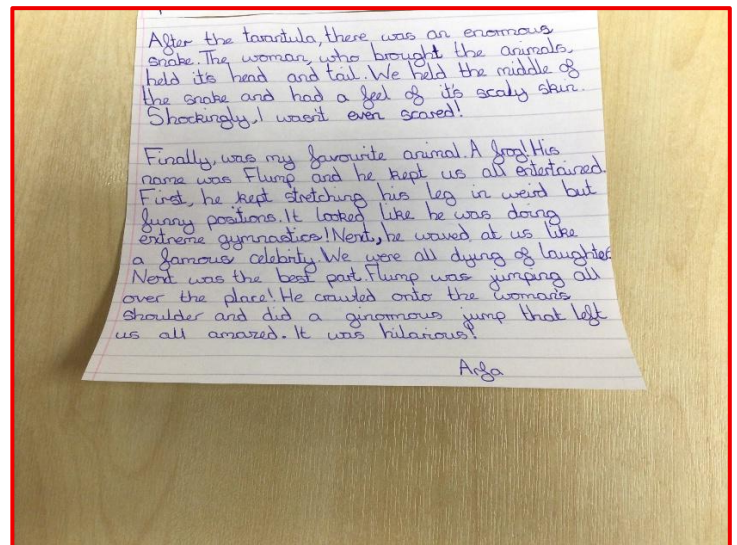 After the tarantula, there was an enormous
snake. The woman, who brought the animals,
held it's head and tail. We held the middle of
the snake and had a feel of it's scaly skin.
Shockingly, I wasn't even scared!
Finally, was my favourite animal. A frog! His
name was Flump and he kept us all entertained.
First, he kept stretching his leg in weird but
funny positions. It looked like he was doing
extreme gymnastics! Next, he waved at us like
a famous celebrity. We were all dying of laughter
Next was the best part. Flump was jumping all
over the place! He crawled onto the woman's
shoulder and did a ginormous jump that left
us all amazed. It was hilarious!
Arfa